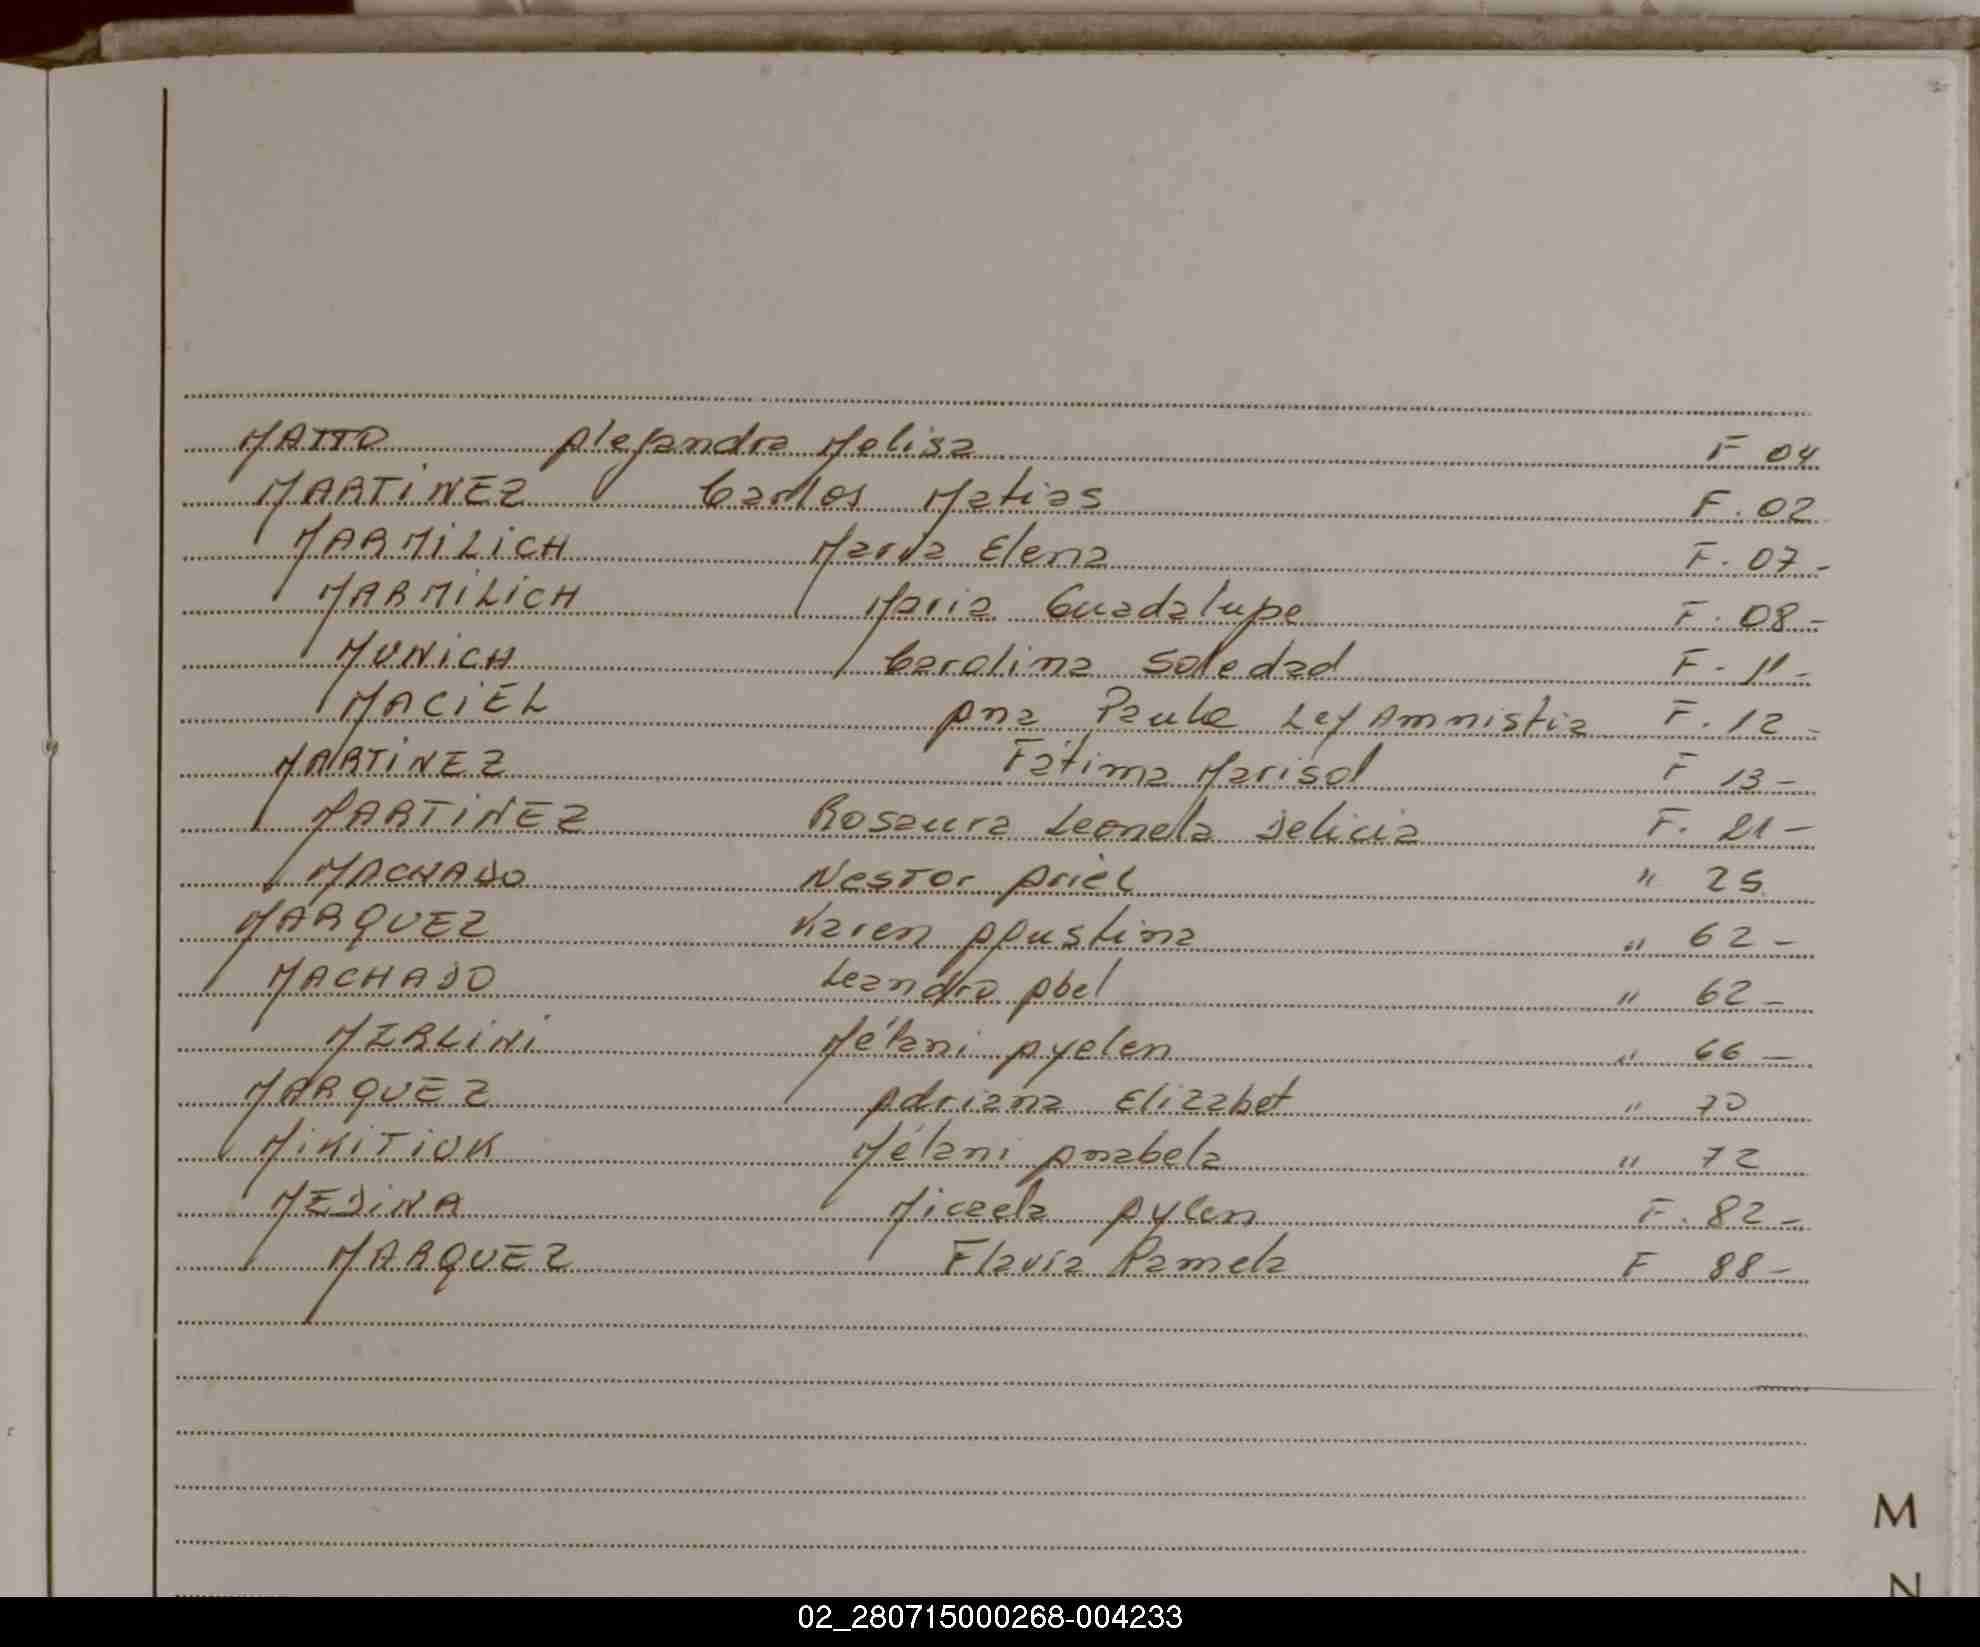 MATTO Alejandra Melisa F 04
MARTINEZ Carlos Matias F. 02
MARMILICH Maria Elena F. 07 -
MARMILICH Maria Guadalupe F. 08 -
MUNICH Carolina Soledad F. 11 -
MACIEL Ana Paula Ley Amnistia F. 12 -
MARTINEZ Fátima Marisol F 13 -
MARTINEZ Rosaura Leonela Delicia F. 21 -
MACHADO Nestor Ariel " 25
MARQUEZ Karen Agustina " 62 -
MACHADO Leandro Abel " 62 -
MERLINI Mélani Ayelen " 66 -
MARQUEZ Adriana Elizabet " 70
MIKITIUK Mélani Anabela " 72
MEDINA Micaela Aylen F. 82 -
MARQUEZ Flavia Pamela F 88 -
M
N
02_280715000268-004233